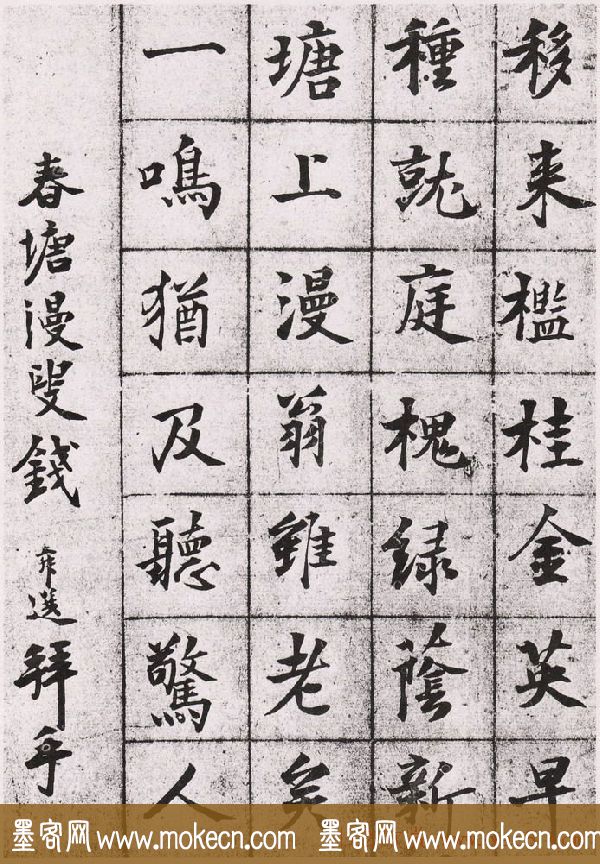 移来檻桂金英早
種就庭槐緑蔭新
塘上漫翁雖老矣
一鳴猶及聽驚人
春塘漫叟錢 選拜手
墨客网 www.mokecn.com 墨客网 www.mokecn.com